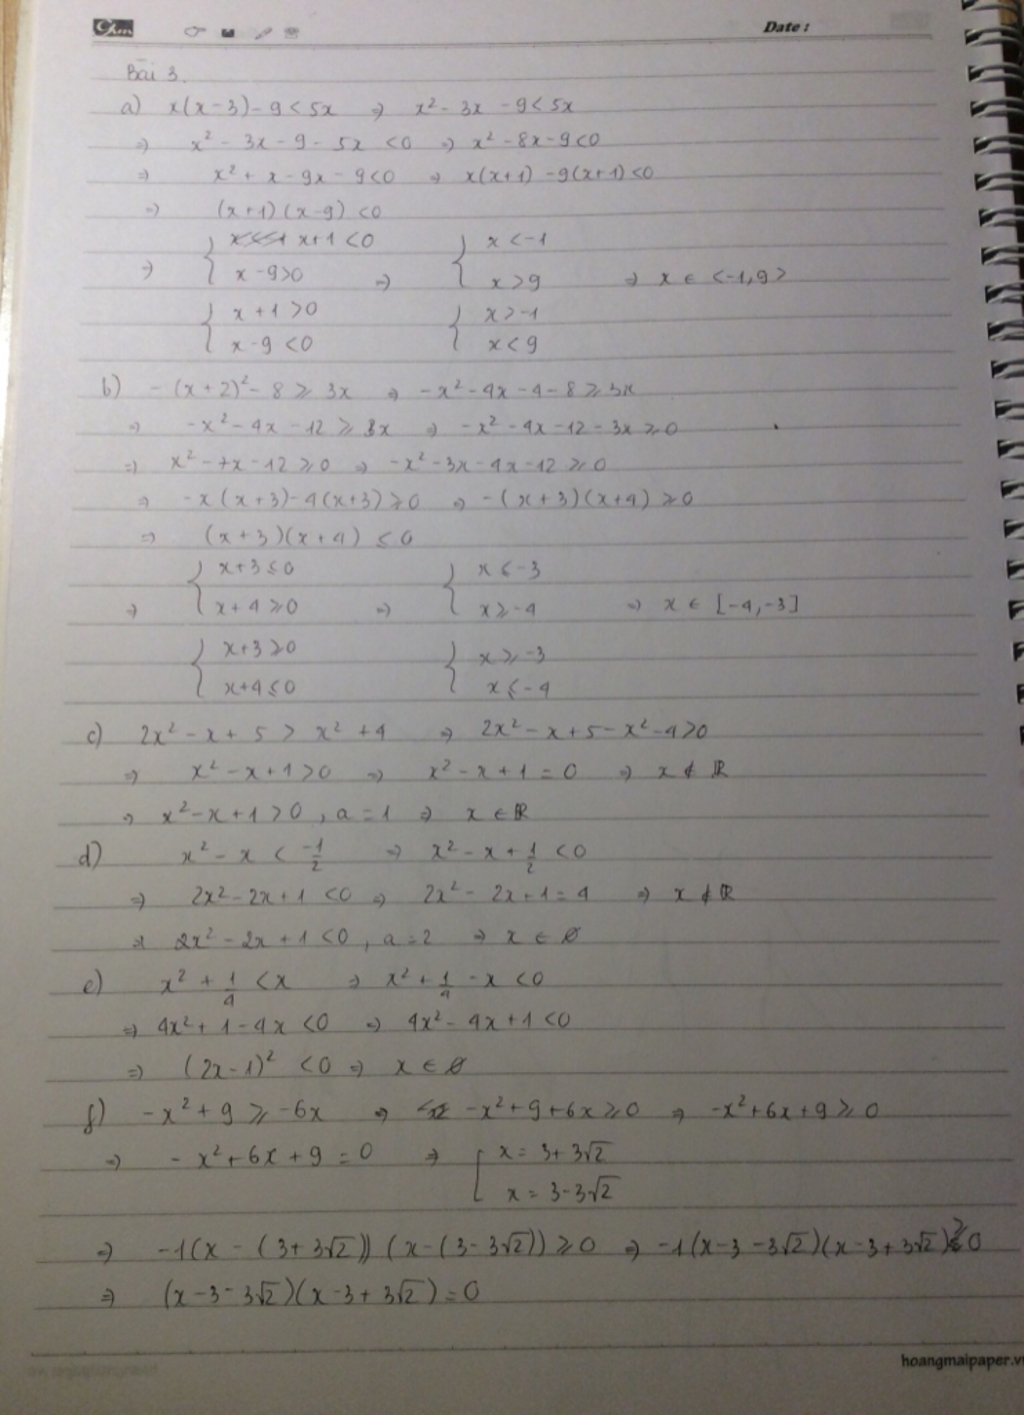 Date :
Bài 3.
a) x(x-3)-9<5x => x² - 3x - 9<5x
=> x² - 3x - 9 - 5x <0 => x² - 8x - 9<0
=> x² + x - 9x - 9<0 => x(x+1) -9(x+1)<0
=> (x+1)(x-9)<0
=> { x+1<0 => { x<-1
x-9>0 x>9 => x ∈ <-1,9>
{ x+1>0 { x>-1
x-9<0 x<9
b) -(x+2)²-8 ≥ 3x => -x²-4x-4-8 ≥ 3x
=> -x²-4x-12 ≥ 3x => -x²-4x-12-3x ≥ 0
=> x²-7x-12 ≥ 0 => -x²-3x-4x-12 ≥ 0
=> -x(x+3)-4(x+3) ≥ 0 => -(x+3)(x+4) ≥ 0
=> (x+3)(x+4) ≤ 0
{ x+3 ≤ 0 { x ≤ -3
=> x+4 ≥ 0 => x ≥ -4 => x ∈ [-4,-3]
{ x+3 ≥ 0 { x ≥ -3
x+4 ≤ 0 x ≤ -4
c) 2x² - x + 5 > x² + 4 => 2x² - x + 5 - x² - 4>0
=> x² - x + 1>0 => x² - x + 1 = 0 => x ∉ ℝ
=> x² - x + 1>0, a = 1 => x ∈ ℝ
d) x² - x < -1/2 => x² - x + 1/2 <0
=> 2x² - 2x + 1 <0 => 2x² - 2x + 1 = 4 => x ∉ ℝ
=> 2x² - 2x + 1 <0, a = 2 => x ∈ ∅
e) x² + 1/4 < x => x² + 1/4 - x <0
=> 4x² + 1 - 4x <0 => 4x² - 4x + 1 <0
=> (2x-1)² <0 => x ∈ ∅
f) -x² + 9 ≥ -6x => -x² + 9 + 6x ≥ 0 => -x² + 6x + 9 ≥ 0
=> -x² + 6x + 9 = 0 => [ x = 3 + 3√2
x = 3 - 3√2
=> -1(x - (3 + 3√2))(x - (3 - 3√2)) ≥ 0 => -1(x - 3 - 3√2)(x - 3 + 3√2) ≥ 0
=> (x - 3 - 3√2)(x - 3 + 3√2) = 0
hoangmaipaper.v